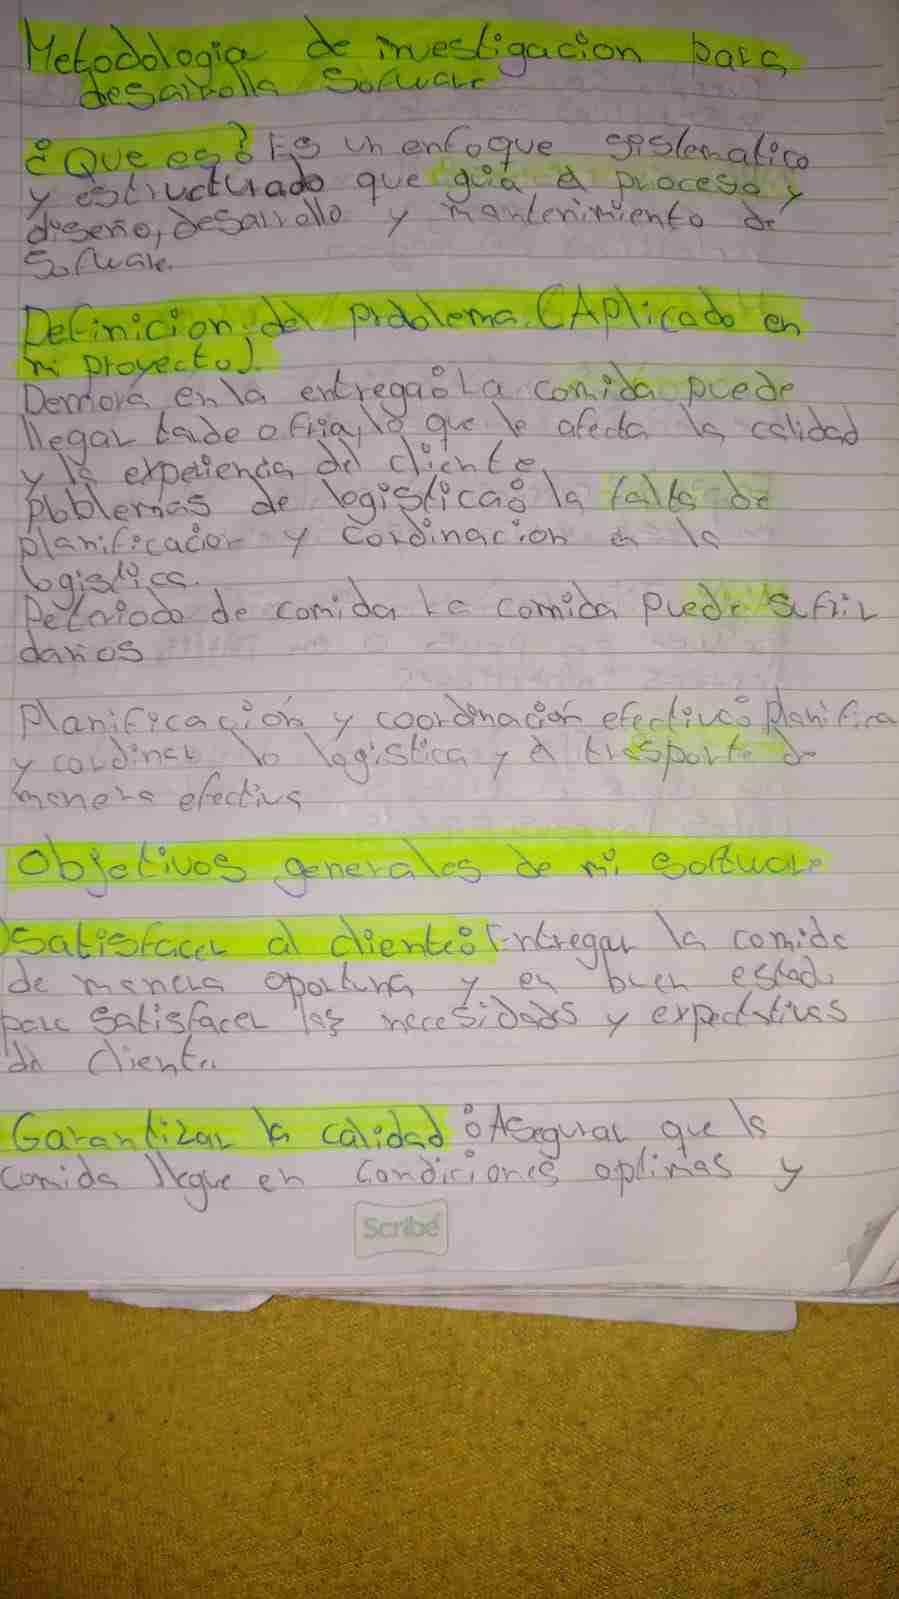 Metodologia de investigacion para
desarrolla Software
¿Que es? Es un enfoque sistematico
y estructurado que guia el proceso y
diseño, desarrollo y mantenimiento de
Software.
Definicion del problema (Aplicado en
mi proyecto).
Demora en la entrega: La comida puede
llegar tarde o fria, lo que le afecta la calidad
y la experiencia del cliente.
Poblemas de logistica: la falta de
planificacion y cordinacion en la
logistica.
de comida La comida puede sufrir
daños
Planificación y coordinación efectiva: planifica
y cordinar la logistica y el trasporte de
manera efectiva
Objetivos generales de mi software
Satisfacer al cliente: Entregar la comida
de manera oportuna y en buen estado
para satisfacer las necesidades y expectativas
del cliente.
Garantizar la calidad: Asegurar que la
comida llegue en condiciones optimas y
Scribe